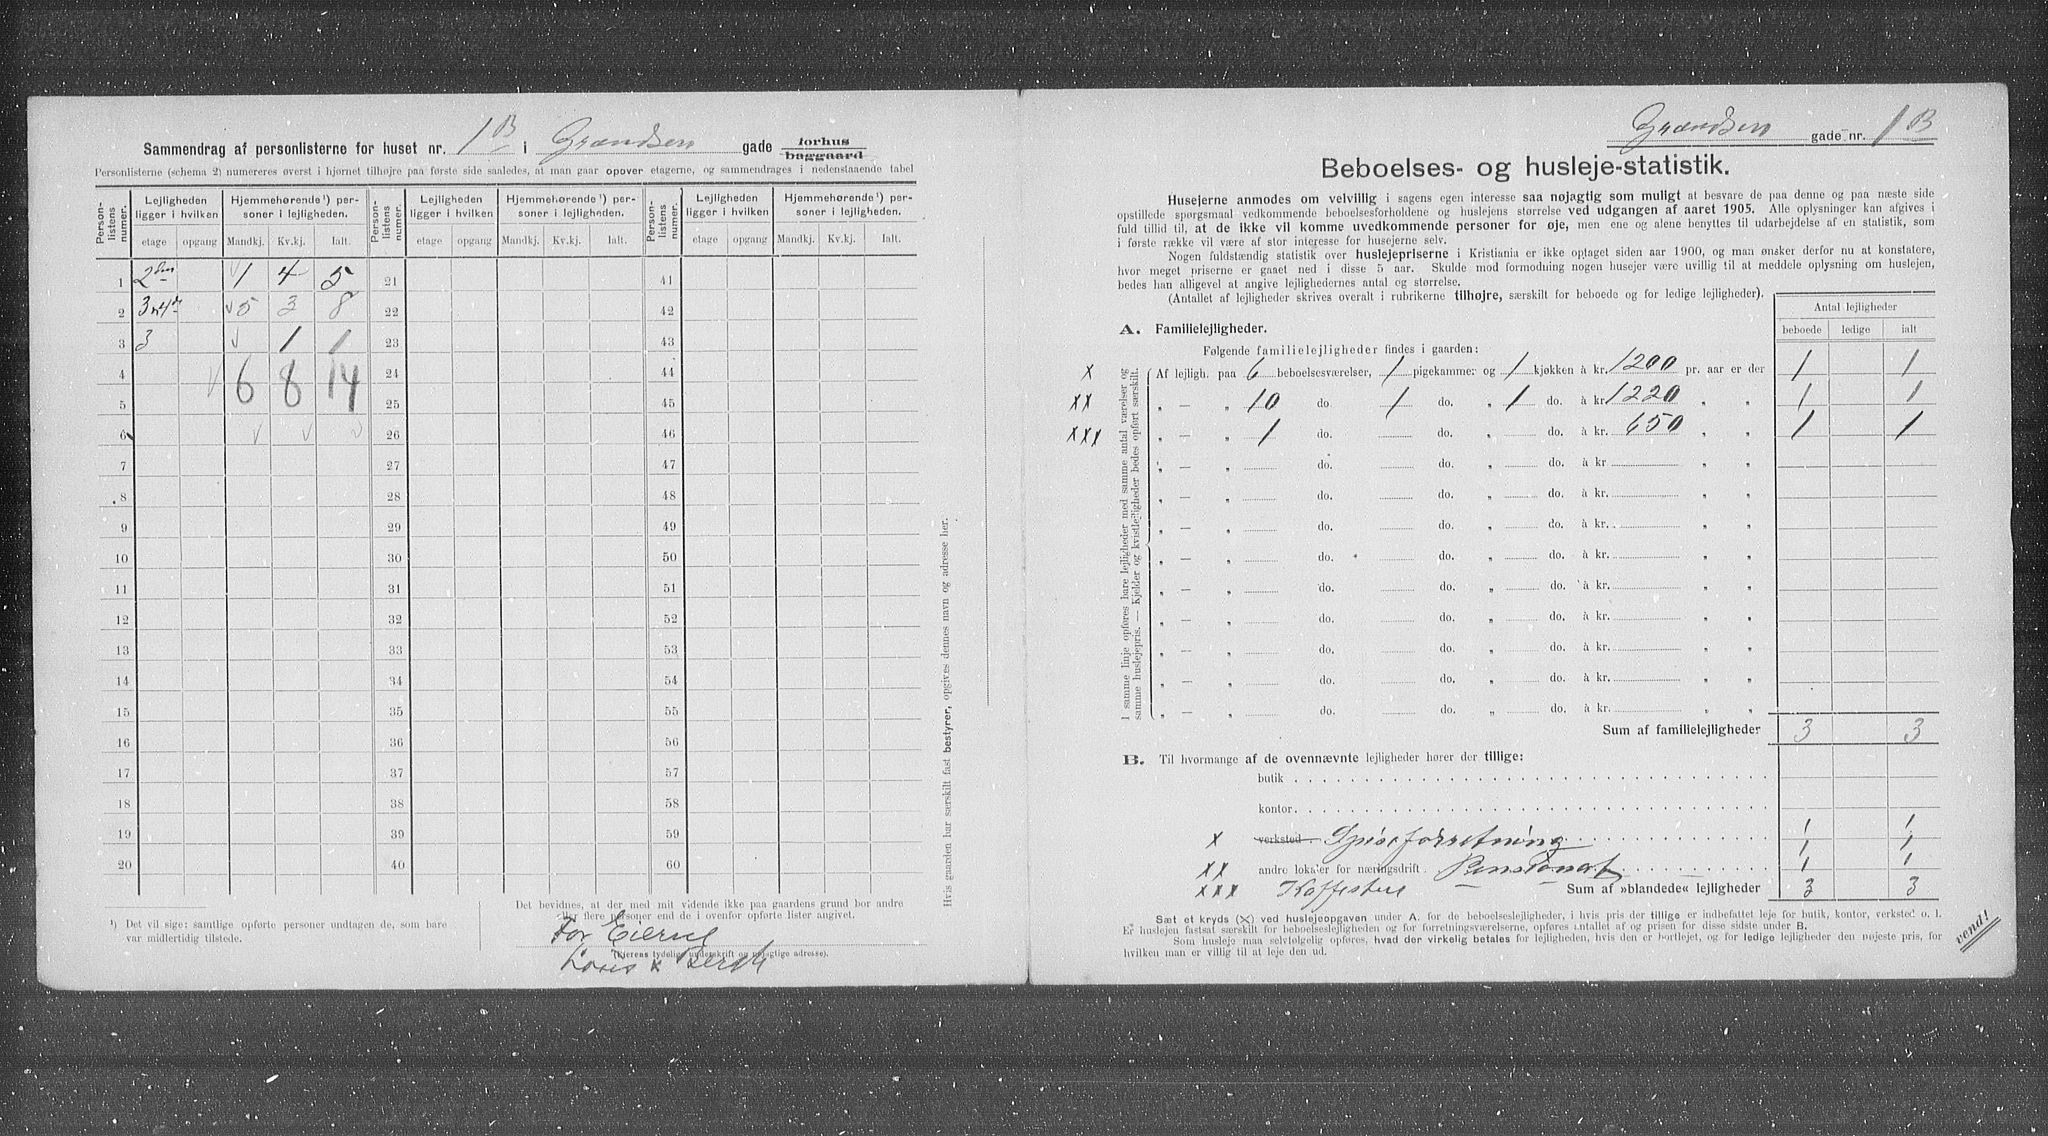 Sammendrag af personlisterne for huset nr. 1B i Grændsen gade forhus baggaard
Personlisterne (schema 2) numereres øverst i hjørnet tilhøjre paa første side saaledes, at man gaar opover etagerne, og sammendrages i nedenstaaende tabel
Person-listens numer. Lejligheden ligger i hvilken Hjemmehørende¹) personer i lejligheden. Person-listens numer. Lejligheden ligger i hvilken Hjemmehørende¹) personer i lejligheden. Person-listens numer. Lejligheden ligger i hvilken Hjemmehørende¹) personer i lejligheden.
etage opgang Mandkj. Kv.kj. Ialt. etage opgang Mandkj. Kv.kj. Ialt. etage opgang Mandkj. Kv.kj. Ialt.
1 2den 1 4 5 21 41
2 3 4de 5 3 8 22 42
3 3 1 1 23 43
4 6 8 14 24 44
5 25 45
6 26 46
7 27 47
8 28 48
9 29 49
10 30 50
11 31 51
12 32 52
13 33 53
14 34 54
15 35 55
16 36 56
17 37 57
18 38 58
19 39 59
20 40 60
¹) Det vil sige: samtlige opførte personer undtagen de, som bare
var midlertidig tilstede.
Det bevidnes, at der med mit vidende ikke paa gaardens grund bor andre
eller flere personer end de i ovenfor opførte lister angivet.
For Eieren
(Ejerens tydelige underskrift og nøjagtige adresse).
Hvis gaarden har særskilt fast bestyrer, opgives dennes navn og adresse her.
Grændsen gade nr. 1B
Beboelses- og husleje-statistik.
Husejerne anmodes om velvillig i sagens egen interesse saa nøjagtig som muligt at besvare de paa denne og paa næste side
opstillede spørgsmaal vedkommende beboelsesforholdene og huslejens størrelse ved udgangen af aaret 1905. Alle oplysninger kan afgives i
fuld tillid til, at de ikke vil komme uvedkommende personer for øje, men ene og alene benyttes til udarbejdelse af en statistik, som
i første række vil være af stor interesse for husejerne selv.
Nogen fuldstændig statistik over huslejepriserne i Kristiania er ikke optaget siden aar 1900, og man ønsker derfor nu at konstatere,
hvor meget priserne er gaaet ned i disse 5 aar. Skulde mod formodning nogen husejer være uvillig til at meddele oplysning om huslejen,
bedes han alligevel at angive lejlighedernes antal og størrelse.
(Antallet af lejligheder skrives overalt i rubrikerne tilhøjre, særskilt for beboede og for ledige lejligheder).
Antal lejligheder
beboede ledige ialt
A. Familielejligheder.
Følgende familielejligheder findes i gaarden:
I samme linje opføres bare lejligheder med samme antal værelser og
samme huslejepris. — Kjelder og kvistlejligheder bedes opført særskilt.
x Af lejligh. paa 6 beboelsesværelser, 1 pigekammer og 1 kjøkken à kr. 1200 pr. aar er der 1 1
xx „ — „ 10 do. 1 do. „ 1 do. à kr. 1220 „ „ 1 1
xxx „ — „ 1 do. do. „ do. à kr. 650 „ „ 1 1
„ — „ do. do. „ do. à kr. „ „
„ — „ do. do. „ do. à kr. „ „
„ — „ do. do. „ do. à kr. „ „
„ — „ do. do. „ do. à kr. „ „
„ — „ do. do. „ do. à kr. „ „
„ — „ do. do. „ do. à kr. „ „
„ — „ do. do. „ do. à kr. „ „
„ — „ do. do. „ do. à kr. „ „
„ — „ do. do. „ do. à kr. „ „
Sum af familielejligheder 3 3
B. Til hvormange af de ovennævnte lejligheder hører der tillige:
butik
kontor
x verksted Spiseforretning 1 1
xx andre lokaler for næringsdrift. Pensionat 1 1
1 1
xxx Kaffestue Sum af »blandede« lejligheder 3 3
Sæt et kryds (X) ved huslejeopgaven under A. for de beboelseslejligheder, i hvis pris der tillige er indbefattet leje for butik, kontor, verksted o. l.
Er huslejen fastsat særskilt for beboelseslejligheden og for forretningsværelserne, opføres antallet af og prisen for disse sidste under B.
Som husleje maa selvfølgelig opføres, hvad der virkelig betales for lejligheden, hvis den er bortlejet, og for ledige lejligheder den nøjeste pris, for
hvilken man er villig til at leje den ud.
vend!